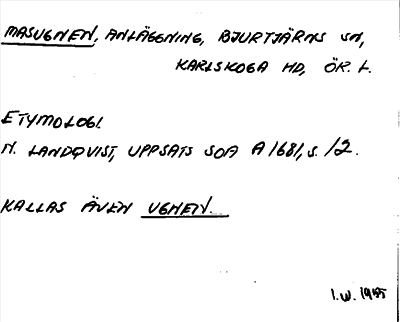 MASUGNEN, ANLÄGGNING, BJURTJÄRNS SN,
KARLSKOGA HD, ÖR. L.
ETYMOLOGI.
N. LANDQVIST, UPPSATS SOA A1681, S. 12.
KALLAS ÄVEN UGNEN.
I.W. 1955